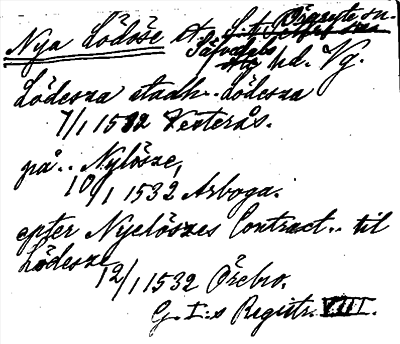 Nya Lödöse st. f. d. Örgryte sn.
Sävedals hd. Vg.
Lödesza stadh.. Lödesza
7/1 1532 Vesterås.
på.. Nylösze,
10/1 1532 Arboga.
epter Nyelöszes Contract.. til
Lödesze
12/1 1532 Örebro.
G. I:s Registr. VIII.